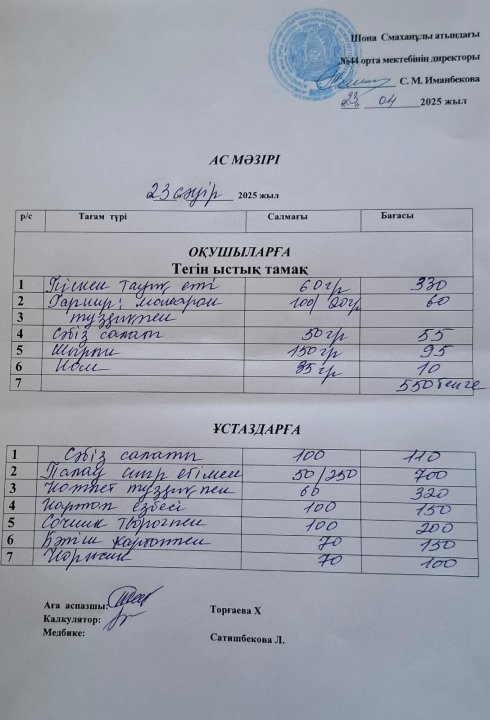 Шона Смаханұлы атындағы
№44 орта мектебінің директоры
С. М. Иманбекова
23 04 2025 жыл
АС МӘЗІРІ
23 сәуір 2025 жыл
р/с Тағам түрі Салмағы Бағасы
ОҚУШЫЛАРҒА
Тегін ыстық тамақ
1 Піскен тауық еті 60гр 330
2 Гарнир: макарон 100/20гр 60
3 тұздықпен
4 Сәбіз салаты 50гр 55
5 Шырын 150гр 95
6 Нан 35гр 10
7 550 теңге
ҰСТАЗДАРҒА
1 Сәбіз салаты 100 110
2 Палау сиыр етімен 50/250 700
3 Котлет тұздықпен 60 320
4 Картоп езбесі 100 150
5 Сочник творогпен 100 200
6 Бәтіш картоппен 70 150
7 Коржик 70 100
Аға аспазшы: Торғаева Х
Калкулятор:
Медбике: Сатишбекова Л.